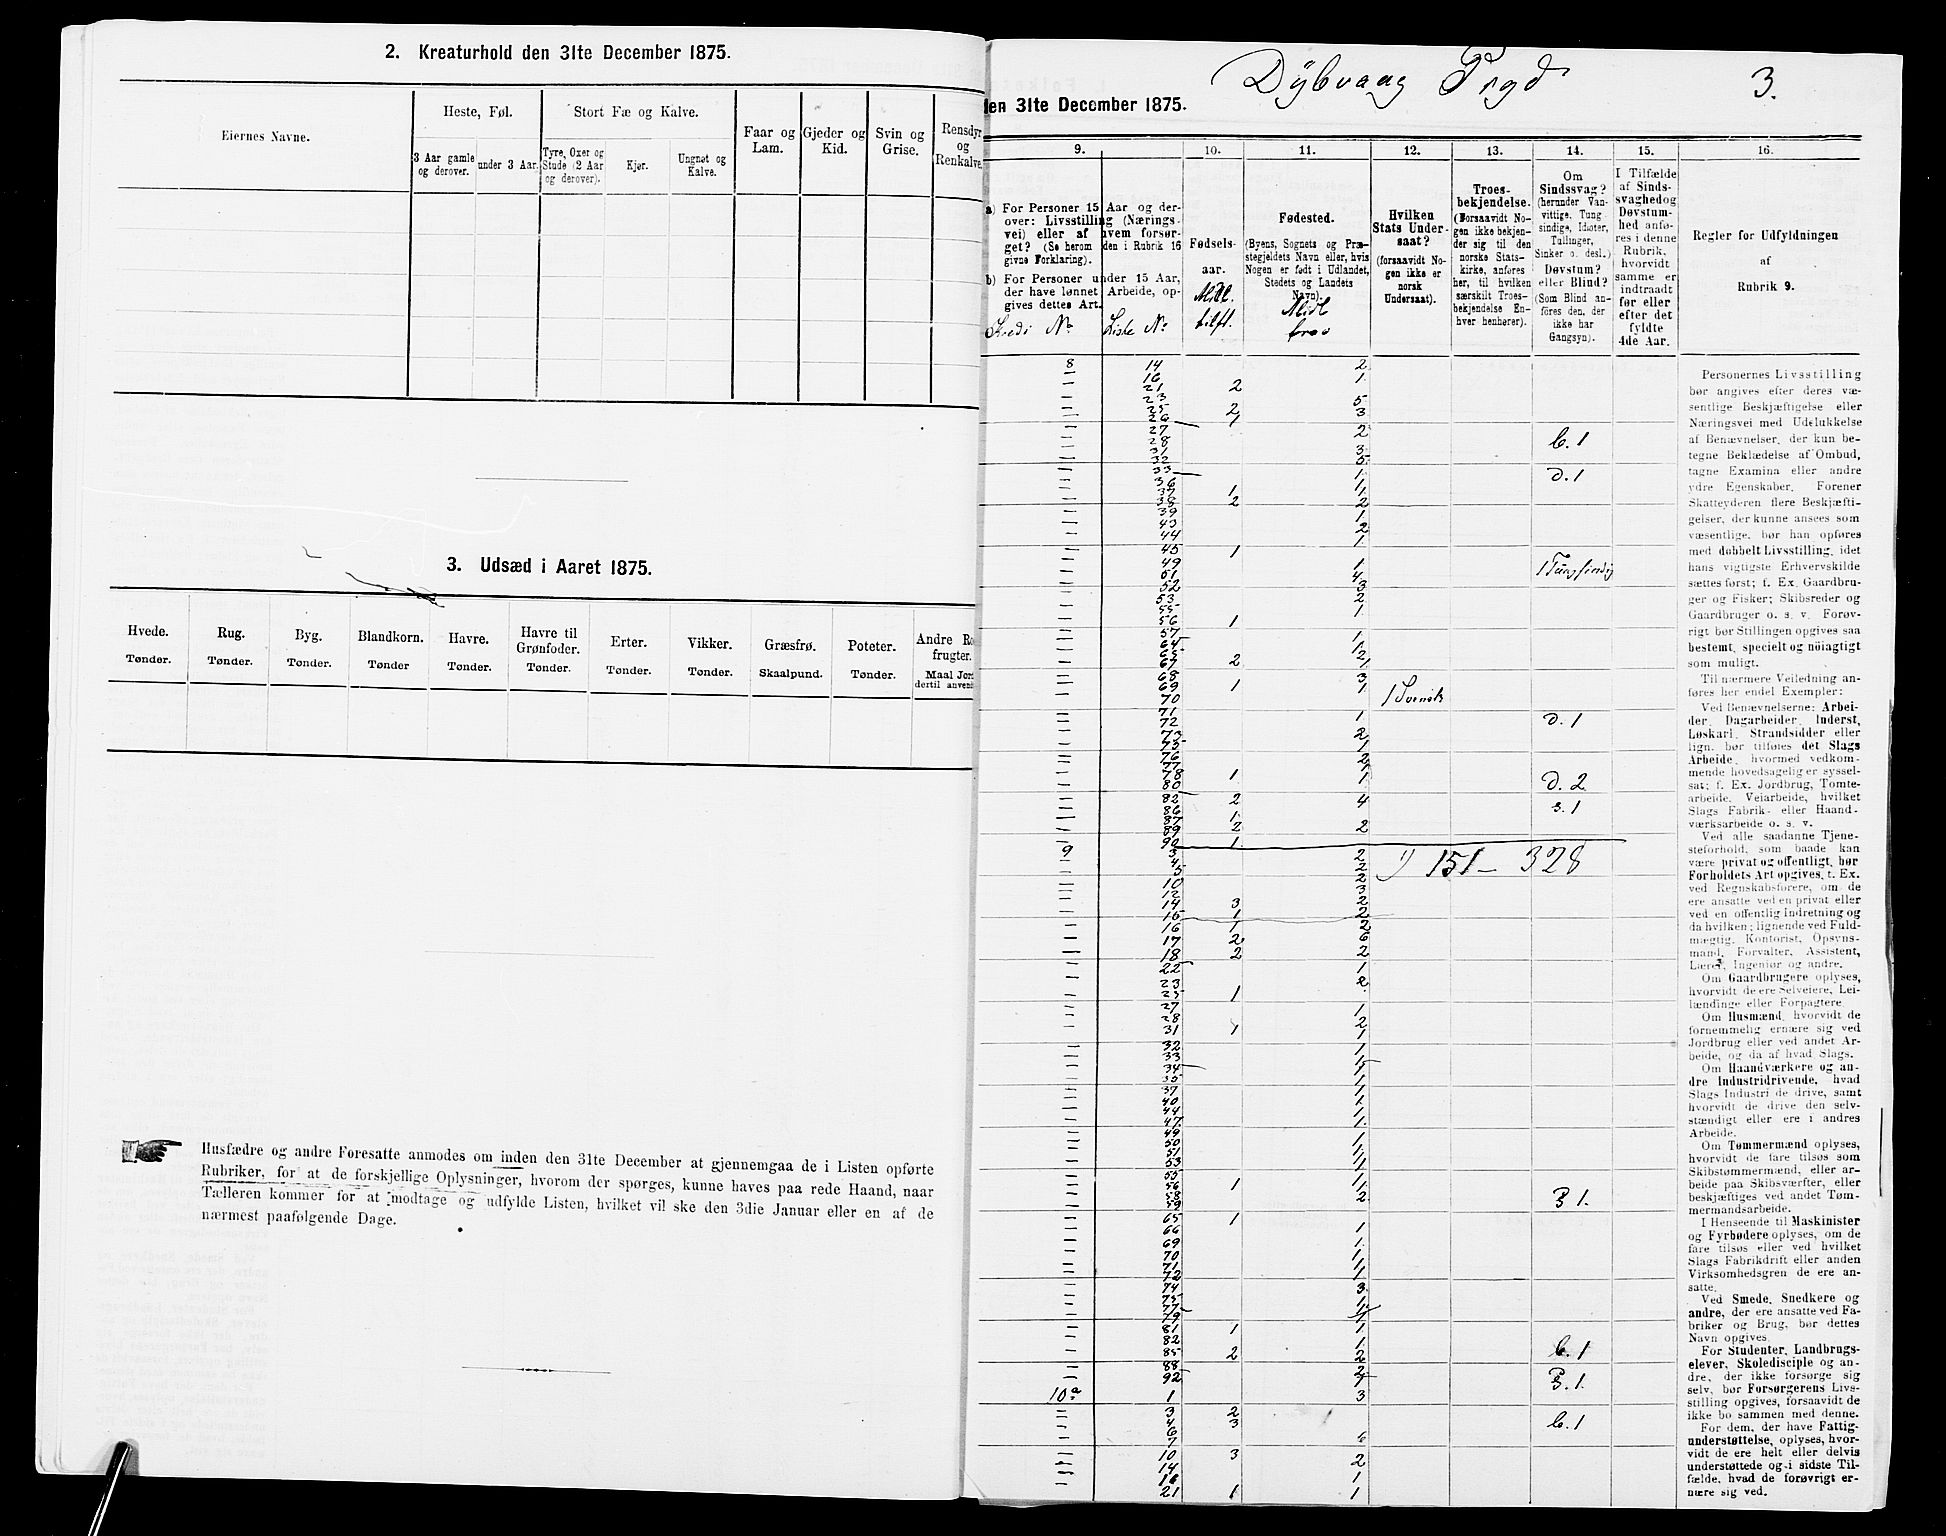 2. Kreaturhold den 31te December 1875.
Eiernes Navne.
Heste, Føl.
Stort Fæ og Kalve.
Faar og Lam.
Gjeder og Kid.
Svin og Grise.
Rensdyr og Renkalve.
3 Aar gamle og derover.
under 3 Aar.
Tyre, Oxer og Stude (2 Aar og derover).
Kjør.
Ungnøt og Kalve.
3. Udsæd i Aaret 1875.
Hvede. Rug. Byg. Blandkorn. Havre. Havre til Grønfoder. Erter. Vikker. Græsfrø. Poteter. Andre Ro- frugter.
Tønder. Tønder. Tønder. Tønder Tønder. Tønder. Tønder. Tønder. Skaalpund. Tønder. Maal Jord dertil anven
Husfædre og andre Foresatte anmodes om inden den 31te December at gjennemgaa de i Listen opførte
Rubriker, for at de forskjellige Oplysninger, hvorom der spørges, kunne haves paa rede Haand, naar
Tælleren kommer for at modtage og udfylde Listen, hvilket vil ske den 3die Januar eller en af de
nærmest paafølgende Dage.
Dybvaag Prgd 3.
den 31te December 1875.
9. 10. 11. 12. 13. 14. 15. 16.
a) For Personer 15 Aar og der-
over: Livsstilling (Nærings-
vei) eller af hvem forsør-
get? (Se herom den i Rubrik 16
givne Forklaring).
b) For Personer under 15 Aar,
der have lønnet Arbeide, op-
gives dettes Art.
Kreds No. Liste No.
Fødsels-
aar.
Midl.
tilst.
Fødested.
(Byens, Sognets og Præ-
stegjeldets Navn eller, hvis
Nogen er født i Udlandet,
Stedets og Landets
Navn).
Midl
frav
Hvilken
Stats Under-
saat?
(forsaavidt No-
gen ikke er
norsk
Undersaat).
Troes-
bekjendelse.
(Forsaavidt No-
gen ikke bekjen-
der sig til den
norske Stats-
kirke, anføres
her, til hvilken
særskilt Troes-
bekjendelse En-
hver henhører).
Om
Sindssvag?
(herunder Van-
vittige, Tung-
sindige, Idioter,
Tullinger,
Sinker o. desl.)
Døvstum?
eller Blind?
(Som Blind an-
føres den, der
ikke har
Gangsyn).
I Tilfælde
af Sinds-
svaghed og
Døvstum-
hed anfø-
res i denne
Rubrik,
hvorvidt
samme er
indtraadt
før eller
efter det
fyldte
4de Aar.
Regler for Udfyldningen
af
Rubrik 9.
8 14 2
16 1
21 2
23 5
25 2 3
26 1
27 2
28 b. 1
31 3
32 5
33 1 d. 1
36 1
37 1 1
38 2 2
39 1
43 2
44 1
45 1
49 1 1 Tungsindig
51 4
52 3
53 2
55 1
56 1
57 1
64 1
65 2
67 2 1
68 3
69 1 1
70 1 Svensk
71 1
72 d. 1
73 2
75 1
76 2
77 1
78 1 1
80 d. 2
82 2 4
86 3. 1
87 1
89 2 2
90 1
9 3 2 1) 151 - 328
4 2
5 2
10 3
12 2
14 3 2
15 1 2
16 1 2
17 2 6
18 2 2
22 1
23 2
25 1
27 1
28 2
31 1 1
32 1
33 1
34 1
35 1
37 1
40 1
44 1
47 1
49 1
50 1
51 1
53 1
55 1
56 1 1
58 2 3 1.
59
65 1
66 1
69 1
70 1
71 1
72 1
74 3
75 1
77 1
79 1
81 1 1
82 1
85 2 2 b. 1
88 2
92 1 3. 1.
10a 1 3
3 2
4 3 b. 1
6
7
10 3 2
14
16 1
21 1 1
Personernes Livsstilling
bør angives efter deres væ-
sentlige Beskjæftigelse eller
Næringsvei med Udelukkelse
af Benævnelser, der kun be-
tegne Beklædelse af Ombud,
tagne Examina eller andre
ydre Egenskaber. Forener
Skatteyderen flere Beskjæfti-
gelser, der kunne ansees som
væsentlige, bør han opføres
med dobbelt Livsstilling, idet
hans vigtigste Erhvervskilde
sættes først; f. Ex. Gaardbru-
ger og Fisker; Skibsreder og
Gaardbruger o. s. v. Forøv-
rigt bør Stillingen opgives saa
bestemt, specielt og nöiagtigt
som muligt.
Til nærmere Veiledning an-
føres her endel Exempler:
Ved Benævnelserne: Arbei-
der, Dagarbeider, Inderst,
Løskarl, Strandsidder eller
lign. bør tilføies det Slags
Arbeide, hvormed vedkom-
mende hovedsagelig er syssel-
sat; f. Ex. Jordbrug, Tomte-
arbeide, Veiarbeide, hvilket
Slags Fabrik- eller Haand-
værksarbeide o. s. v.
Ved alle saadanne Tjene-
steforhold, som baade kan
være privat og offentligt, bør
Forholdets Art opgives, t. Ex.
ved Regnskabsførere, om de
ere ansatte ved en privat eller
ved en offentlig Indretning og
da hvilken; lignende ved Fuld-
mægtig, Kontorist, Opsyns-
mand, Forvalter, Assistent,
Lærer, Ingeniør og andre.
Om Gaardbrugere oplyses,
hvorvidt de ere Selveiere, Lei-
lændinge eller Forpagtere.
Om Husmænd, hvorvidt de
fornemmelig ernære sig ved
Jordbrug eller ved andet Ar-
beide, og da af hvad Slags.
Om Haandværkere og an-
dre Industridrivende, hvad
Slags Industri de drive, samt
hvorvidt de drive den selv-
stændigt eller ere i andres
Arbeide.
Om Tømmermænd oplyses,
hvorvidt de fare tilsøs som
Skibstømmermænd, eller ar-
beide paa Skibsværfter, eller
beskjæftiges ved andet Tøm-
mermandsarbeide.
I Henseende til Maskinister
og Fyrbødere oplyses, om de
fare tilsøs eller ved hvilket
Slags Fabrikdrift eller anden
Virksomhedsgren de ere an-
satte.
Ved Smede, Snedkere og
andre, der ere ansatte ved Fa-
briker og Brug, bør dettes
Navn opgives.
For Studenter, Landbrugs-
elever, Skoledisciple og an-
dre, der ikke forsørge sig
selv, bør Forsørgerens Livs-
stilling opgives, forsaavidt de
ikke bo sammen med denne.
For dem, der have Fattig-
understøttelse, oplyses, hvor-
vidt de ere helt eller delvis
understøttede og i sidste Til-
fælde, hvad de forøvrigt er-
nære sig ved.